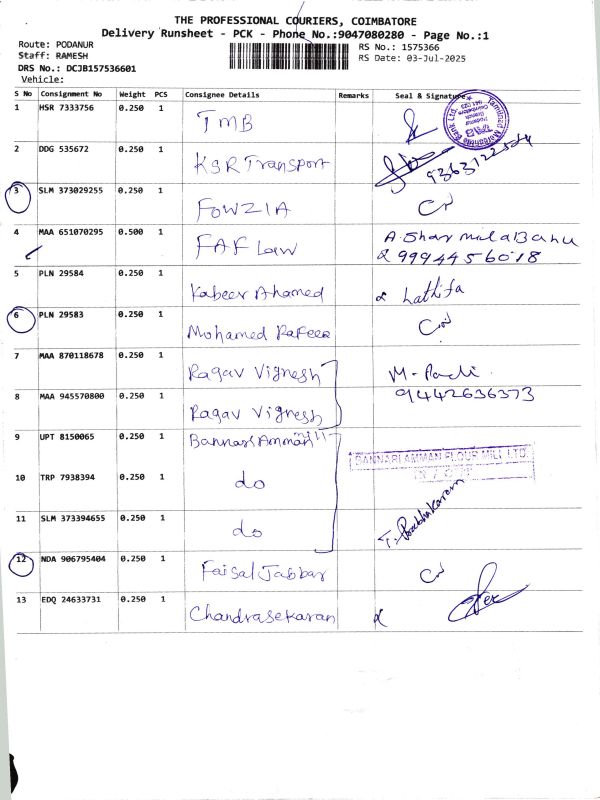 THE PROFESSIONAL COURIERS, COIMBATORE
Delivery Runsheet - PCK - Phone No.:9047080280 - Page No.:1
Route: PODANUR
RS No.: 1575366
Staff: RAMESH
RS Date: 03-Jul-2025
DRS No.: DCJB157536601
Vehicle:
S No Consignment No Weight PCS Consignee Details Remarks Seal & Signature
1 HSR 7333756 0.250 1 TMB
Tamilnad Mercantile Bank Ltd. TMB Podanur Branch Coimbatore 641 023
2 DDG 535672 0.250 1 KSR Transport
3 SLM 373029255 0.250 1 FOWZIA
4 MAA 651070295 0.500 1 FAF Law A. Sharmila Banu
9994456018
5 PLN 29584 0.250 1 Kabeer Ahamed Lathifa
6 PLN 29583 0.250 1 Mohamed Rafeeq
7 MAA 870118678 0.250 1 Ragav Vignesh
8 MAA 945570800 0.250 1 Ragav Vignesh 9442636373
9 UPT 8150065 0.250 1 Bannari Amman Mill
BANNARI AMMAN FLOUR MILL LTD.
10 TRP 7938394 0.250 1 do
T. Prabhakaran
11 SLM 373394655 0.250 1 do
12 NDA 906795404 0.250 1 Faisal Jabbar
13 EDQ 24633731 0.250 1 Chandrasekaran